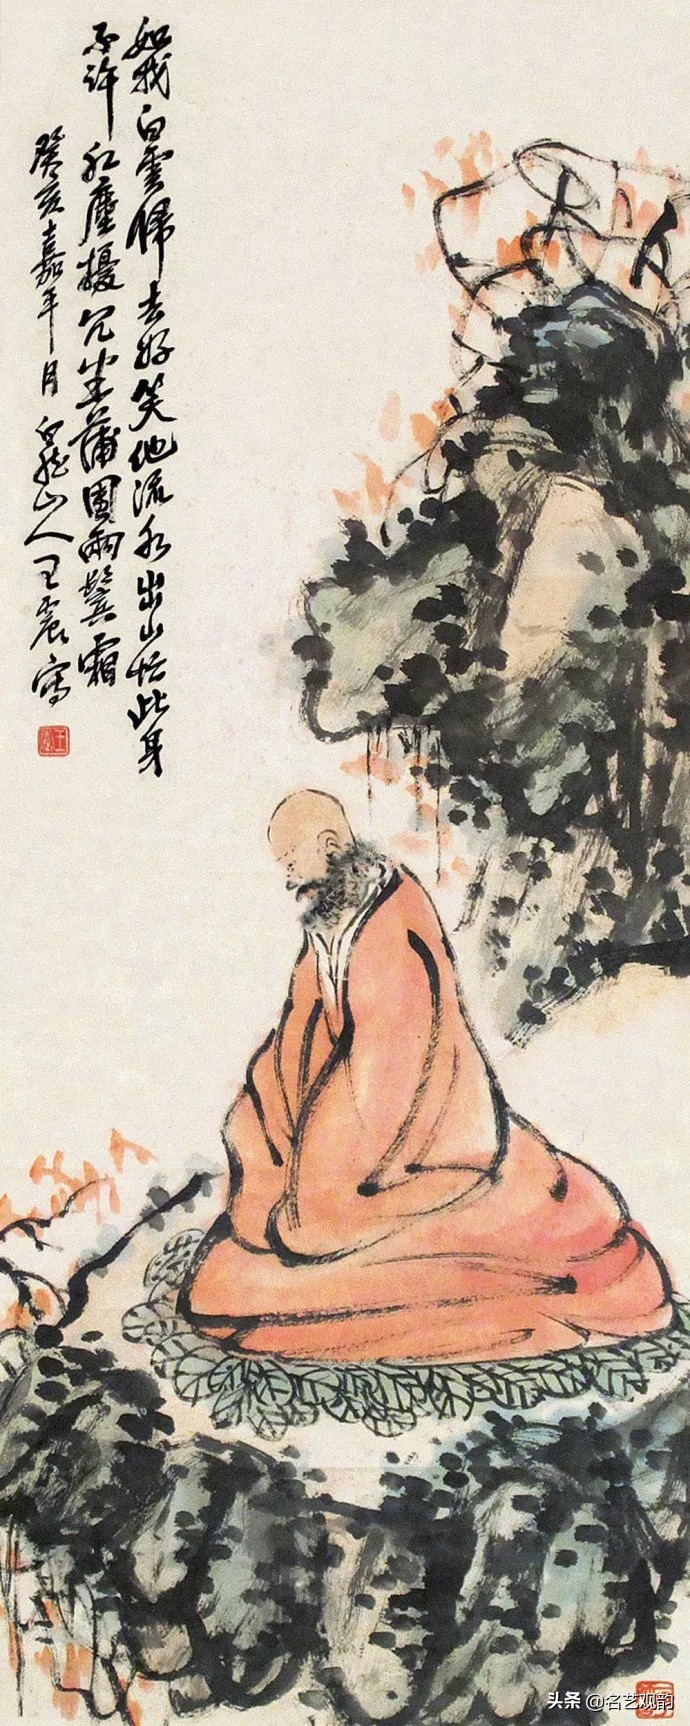 如我白雲歸去好笑他流水出山忙此身
不許紅塵擾冗坐蒲團兩鬢霜
癸亥嘉平月白龍山人王震寫
头条 @名艺观韵